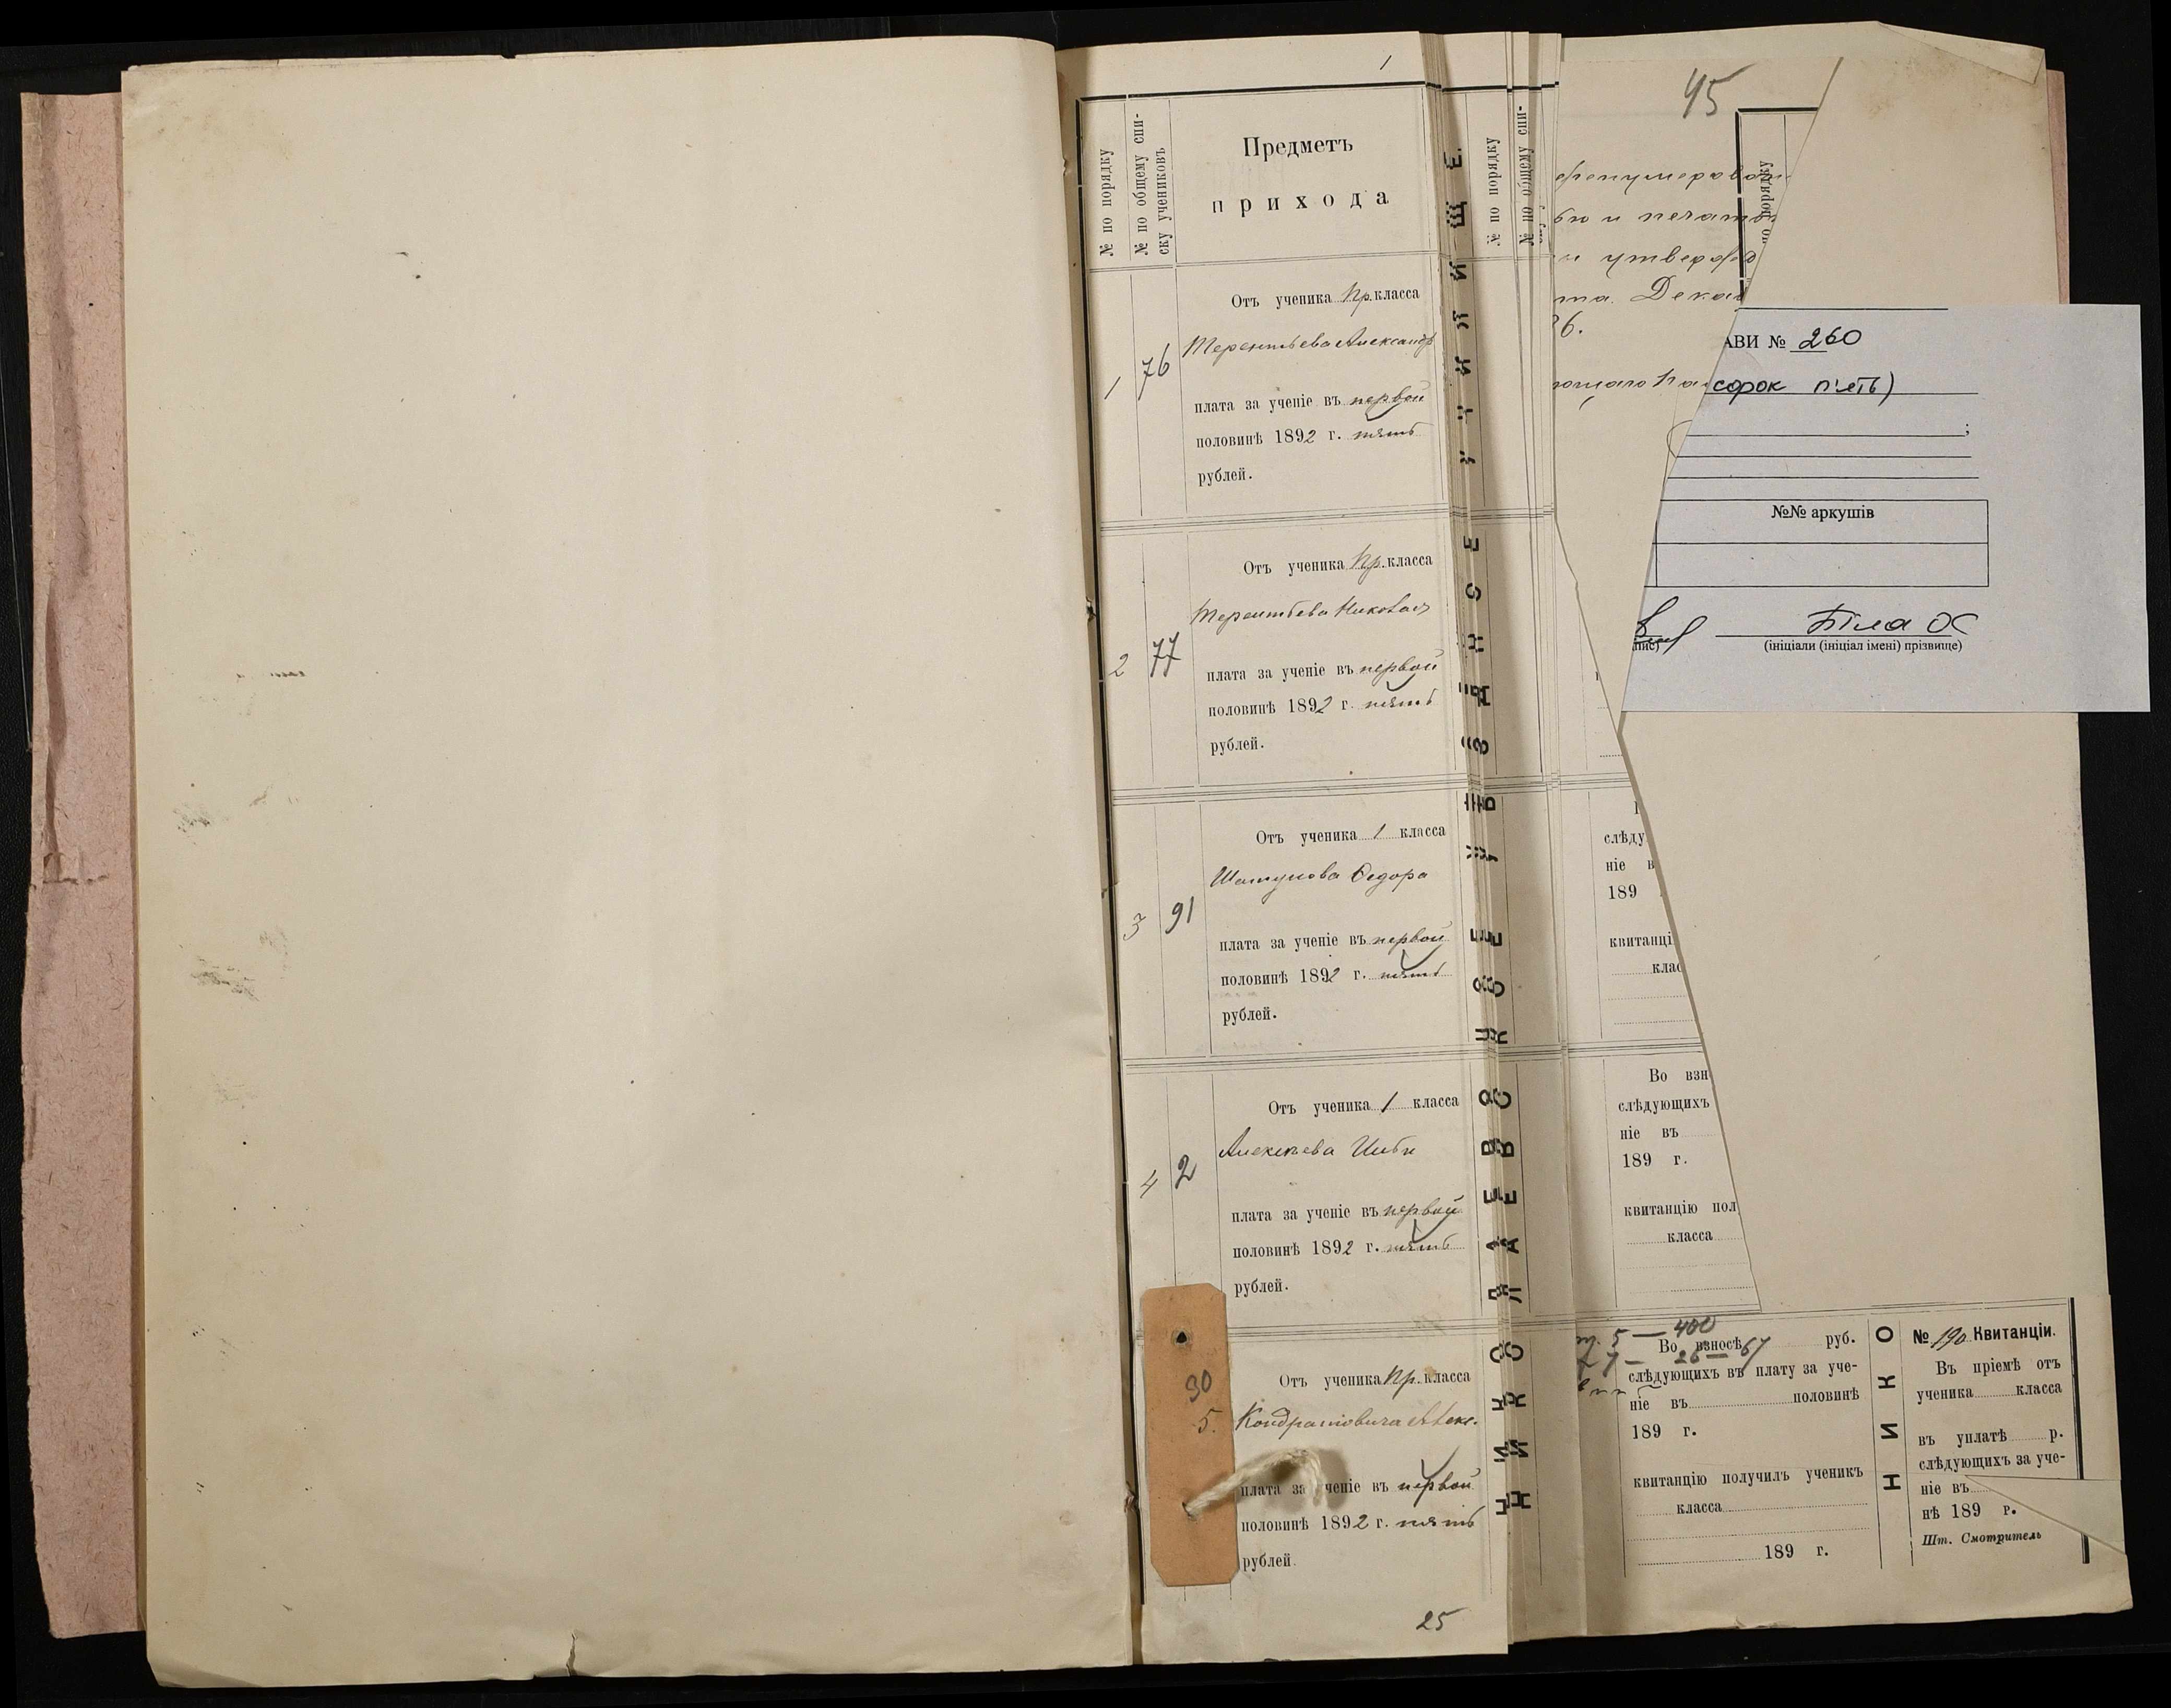 1
№ по порядку
№ по общему спи-
ску учениковъ
Предметъ
прихода
Отъ ученика Пр. класса
1 76 Терентьева Александр
плата за ученіе въ первой
половинѣ 1892 г. пять
рублей.
Отъ ученика Пр. класса
2 77 Терентьева Николая
плата за ученіе въ первой
половинѣ 1892 г. пять
рублей.
Отъ ученика 1 класса
3 91 Шатунова Ѳедора
плата за ученіе въ первой
половинѣ 1892 г. пять
рублей.
Отъ ученика 1 класса
4 2 Алексѣева Ильи
плата за ученіе въ первой
половинѣ 1892 г. пять
рублей.
Отъ ученика Пр. класса
Кондратовича Алекс.
плата за ученіе въ первой
половинѣ 1892 г. пять
рублей.
25
30
5.
№ по порядку
№ по общему спи-
45
по порядку
и утвержд
та. Декаб
АВИ № 260
сорок п'ять)
;
№№ аркушів
Біла О
пис)
(ініціали (ініціал імені) прізвище)
слѣду
ніе в
189
квитанці
клас
Во взн
слѣдующихъ
ніе въ
189 г.
квитанцію пол
класса
5 — 400
7 — 26 — 67
Во взносѣ руб.
слѣдующихъ въ плату за уче-
ніе въ половинѣ
189 г.
квитанцію получилъ ученикъ
класса
189 г.
НИКО
№ 190 Квитанціи.
Въ пріемѣ отъ
ученика класса
въ уплатѣ р.
слѣдующихъ за уче-
ніе въ
нѣ 189 г.
Шт. Смотритель